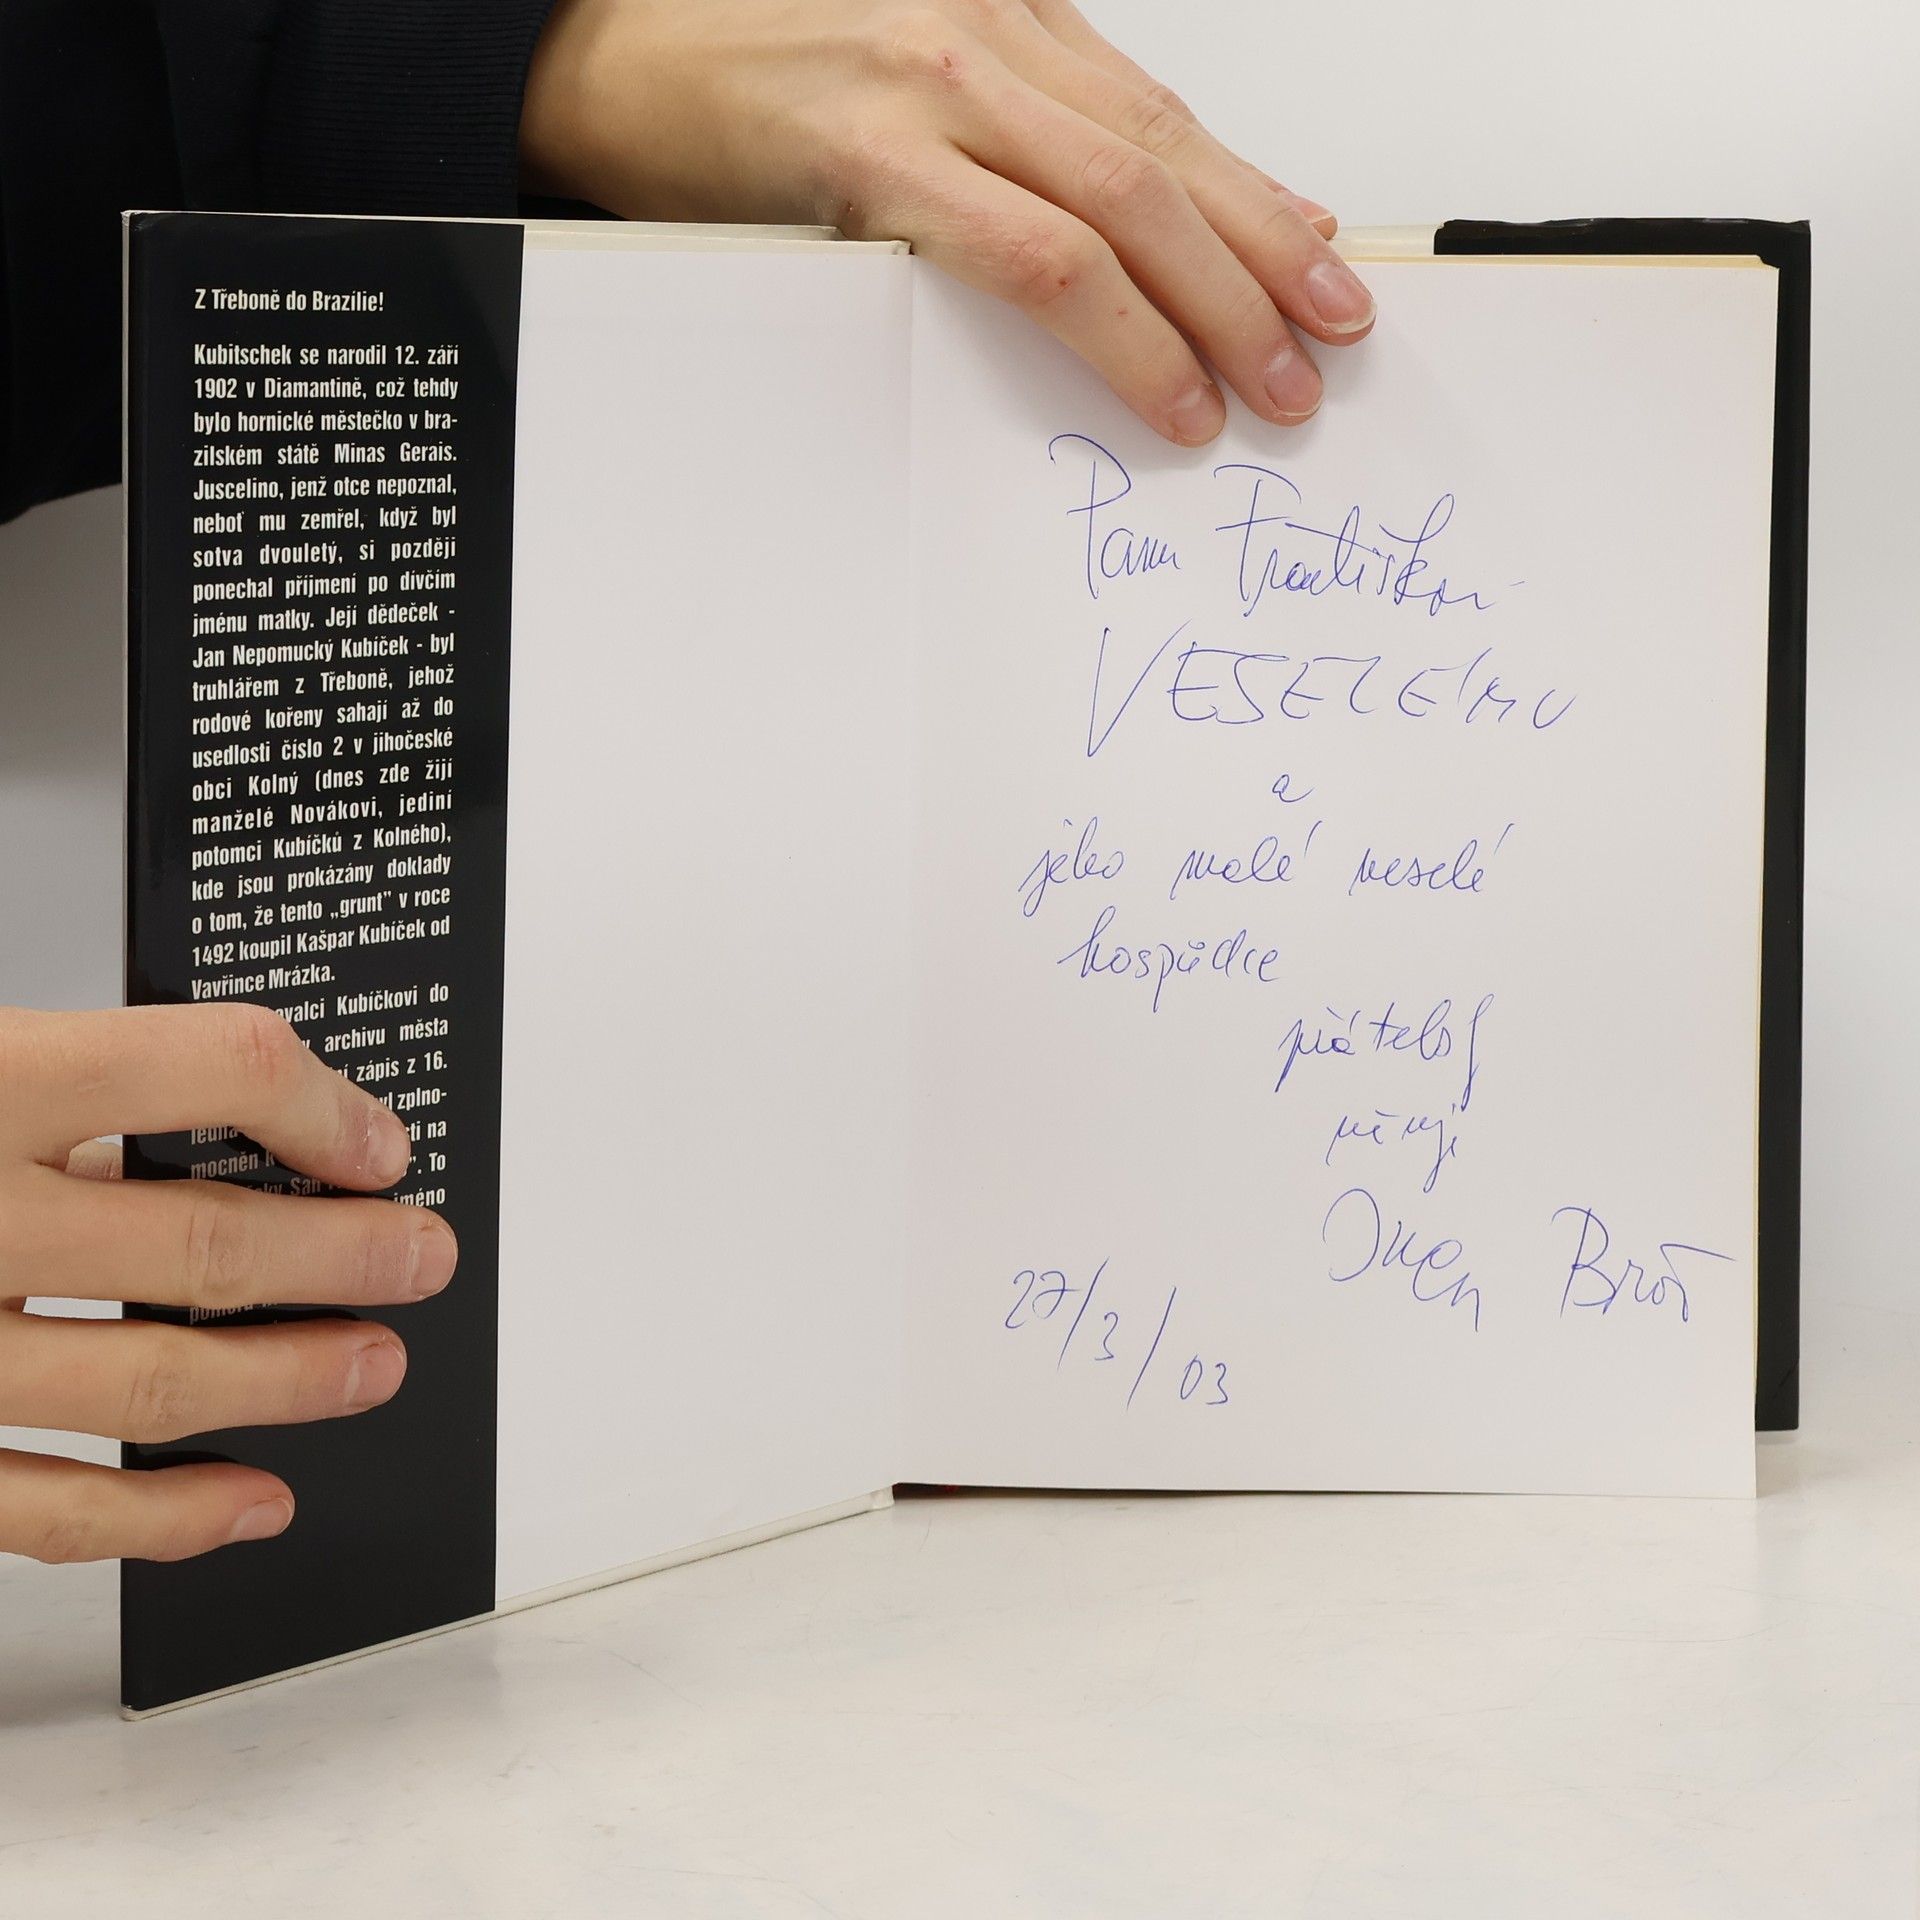 Z Třeboně do Brazílie!
Kubitschek se narodil 12. září
1902 v Diamantině, což tehdy
bylo hornické městečko v bra-
zilském státě Minas Gerais.
Juscelino, jenž otce nepoznal,
neboť mu zemřel, když byl
sotva dvouletý, si později
ponechal příjmení po dívčím
jménu matky. Její dědeček -
Jan Nepomucký Kubíček - byl
truhlářem z Třeboně, jehož
rodové kořeny sahají až do
usedlosti číslo 2 v jihočeské
obci Kolný (dnes zde žijí
manželé Novákovi, jediní
potomci Kubíčků z Kolného),
kde jsou prokázány doklady
o tom, že tento „grunt” v roce
1492 koupil Kašpar Kubíček od
Vavřince Mrázka.
Kubíčkovi do
archivu města
zápis z 16.
zplno-
na
mocněn
To
jméno
Panu Františkovi
VESELÉMU
a
jeho malé veselé
hospůdce
přátelsky
věnuje
Ivan Brož
27/3/03